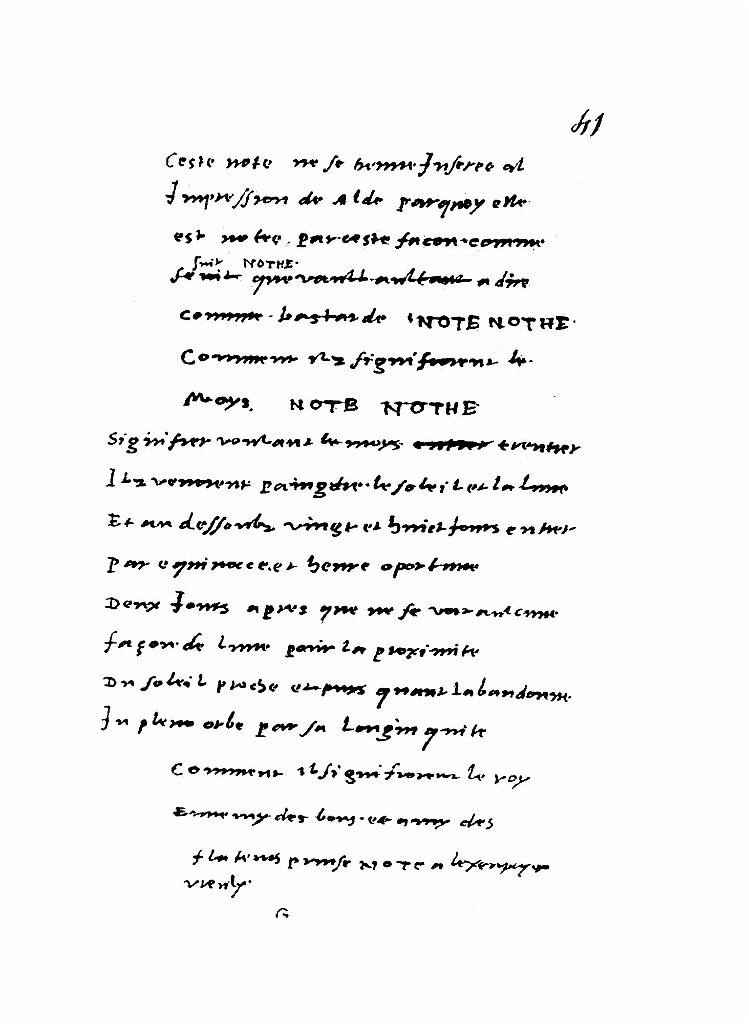 41
Ceste note ne se treuve Inseree al
Impression de Alde parquoy elle
est notee par ceste facon comme
suit NOTHE
que vault aultant a dire
comme bastarde NOTE NOTHE
Comment Ilz signifioient le
Moys. NOTE NOTHE
Signifier voulant le moys entier
Ilz venoient paingdre le soleil et la lune
Et au dessoubz vingt et huict Jours entier
Par equinocce et heure oportune
Deux Jours apres que ne se voit aulcune
façon de lune pour la proximite
Du soleil proche et puis quant labandonne
In pleno orbe par sa longinquite
Comment il signifioient le roy
Ennemy des bons et amy des
flateurs prinse NOTE a lexemp
vieulx
G